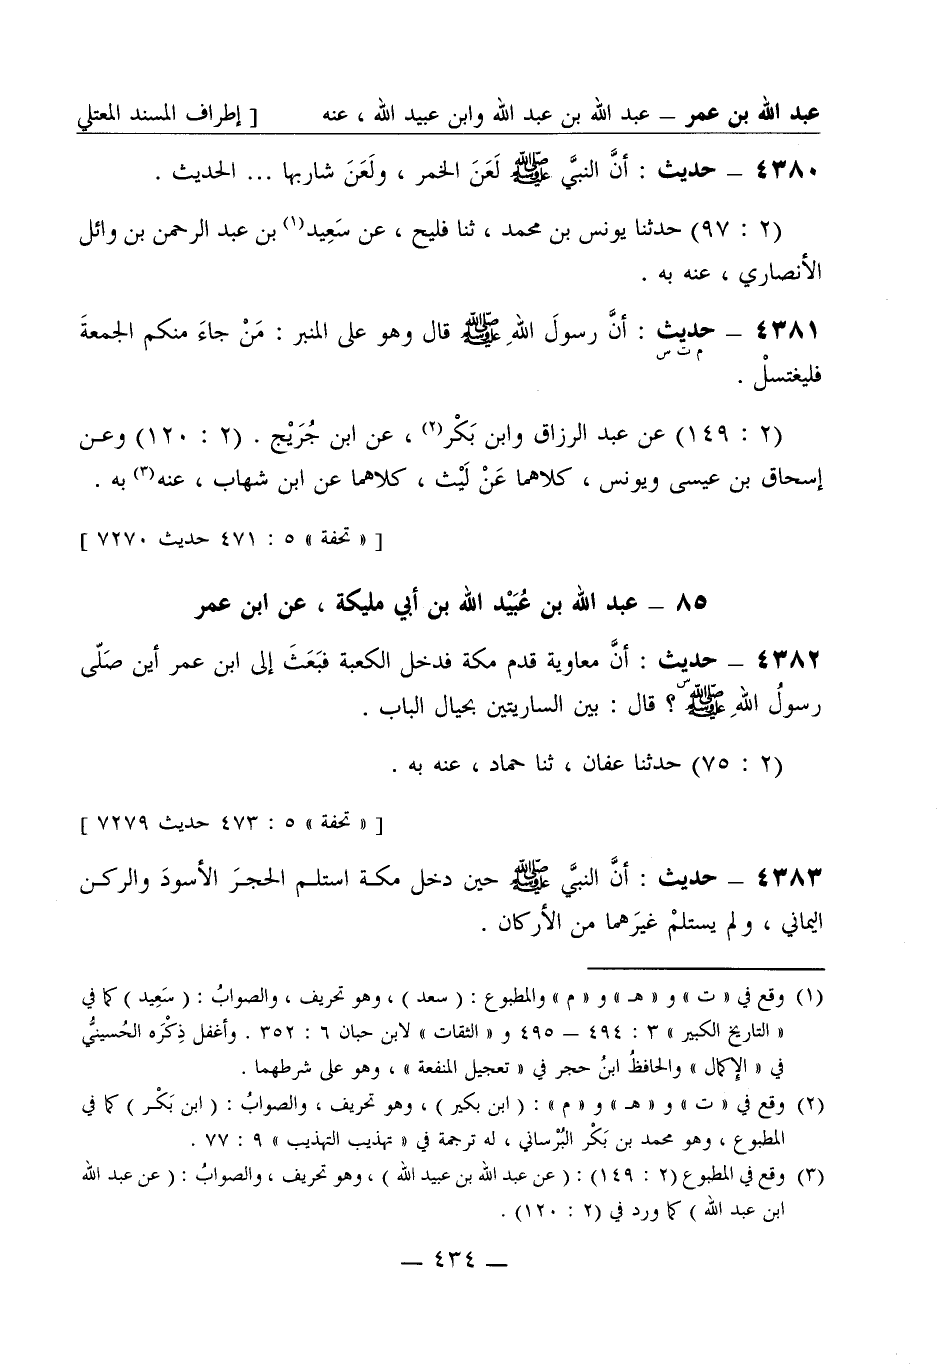 عبد الله بن عمر – عبد الله بن عبد الله وابن عبيد الله ، عنه [ إطراف المسند المعتلي
٤٣٨٠ – حديث : أنَّ النبيَّ ﷺ لَعَنَ الخمر ، ولَعَنَ شاربها ... الحديث .
(٢ : ٩٧) حدثنا يونس بن محمد ، ثنا فليح ، عن سَعِيد(١) بن عبد الرحمن بن وائل
الأنصاري ، عنه به .
٤٣٨١ – حديث : أنَّ رسولَ اللهِ ﷺ قال وهو على المنبر : مَنْ جاءَ منكم الجمعةَ
م ت س
فليغتسلْ .
(٢ : ١٤٩) عن عبد الرزاق وابن بَكْر(٢) ، عن ابن جُرَيْج . (٢ : ١٢٠) وعن
إسحاق بن عيسى ويونس ، كلاهما عَنْ لَيْث ، كلاهما عن ابن شهاب ، عنه(٣) به .
[ « تحفة » ٥ : ٤٧١ حديث ٧٢٧٠ ]
٨٥ – عبد الله بن عُبَيْد الله بن أبي مليكة ، عن ابن عمر
٤٣٨٢ – حديث : أنَّ معاوية قدم مكة فدخل الكعبة فبَعَثَ إلى ابن عمر أين صَلّى
س
رسولُ اللهِ ﷺ ؟ قال : بين الساريتين بحيال الباب .
(٢ : ٧٥) حدثنا عفان ، ثنا حماد ، عنه به .
[ « تحفة » ٥ : ٤٧٣ حديث ٧٢٧٩ ]
٤٣٨٣ – حديث : أنَّ النبيَّ ﷺ حين دخل مكة استلم الحجرَ الأسودَ والركن
اليماني ، ولم يستلمْ غيرَهما من الأركان .
(١) وقع في « ت » و « هـ » و « م » والمطبوع : ( سعد ) ، وهو تحريف ، والصوابُ : ( سَعِيد ) كما في
« التاريخ الكبير » ٣ : ٤٩٤ – ٤٩٥ و « الثقات » لابن حبان ٦ : ٣٥٢ . وأغفل ذِكْرَه الحُسينيُّ
في « الإكمال » والحافظُ ابنُ حجر في « تعجيل المنفعة » ، وهو على شرطهما .
(٢) وقع في « ت » و « هـ » و « م » : ( ابن بكير ) ، وهو تحريف ، والصوابُ : ( ابن بَكْر ) كما في
المطبوع ، وهو محمد بن بَكْر البُرْساني ، له ترجمة في « تهذيب التهذيب » ٩ : ٧٧ .
(٣) وقع في المطبوع (٢ : ١٤٩) : ( عن عبد الله بن عبيد الله ) ، وهو تحريف ، والصوابُ : ( عن عبد الله
ابن عبد الله ) كما ورد في (٢ : ١٢٠) .
– ٤٣٤ –